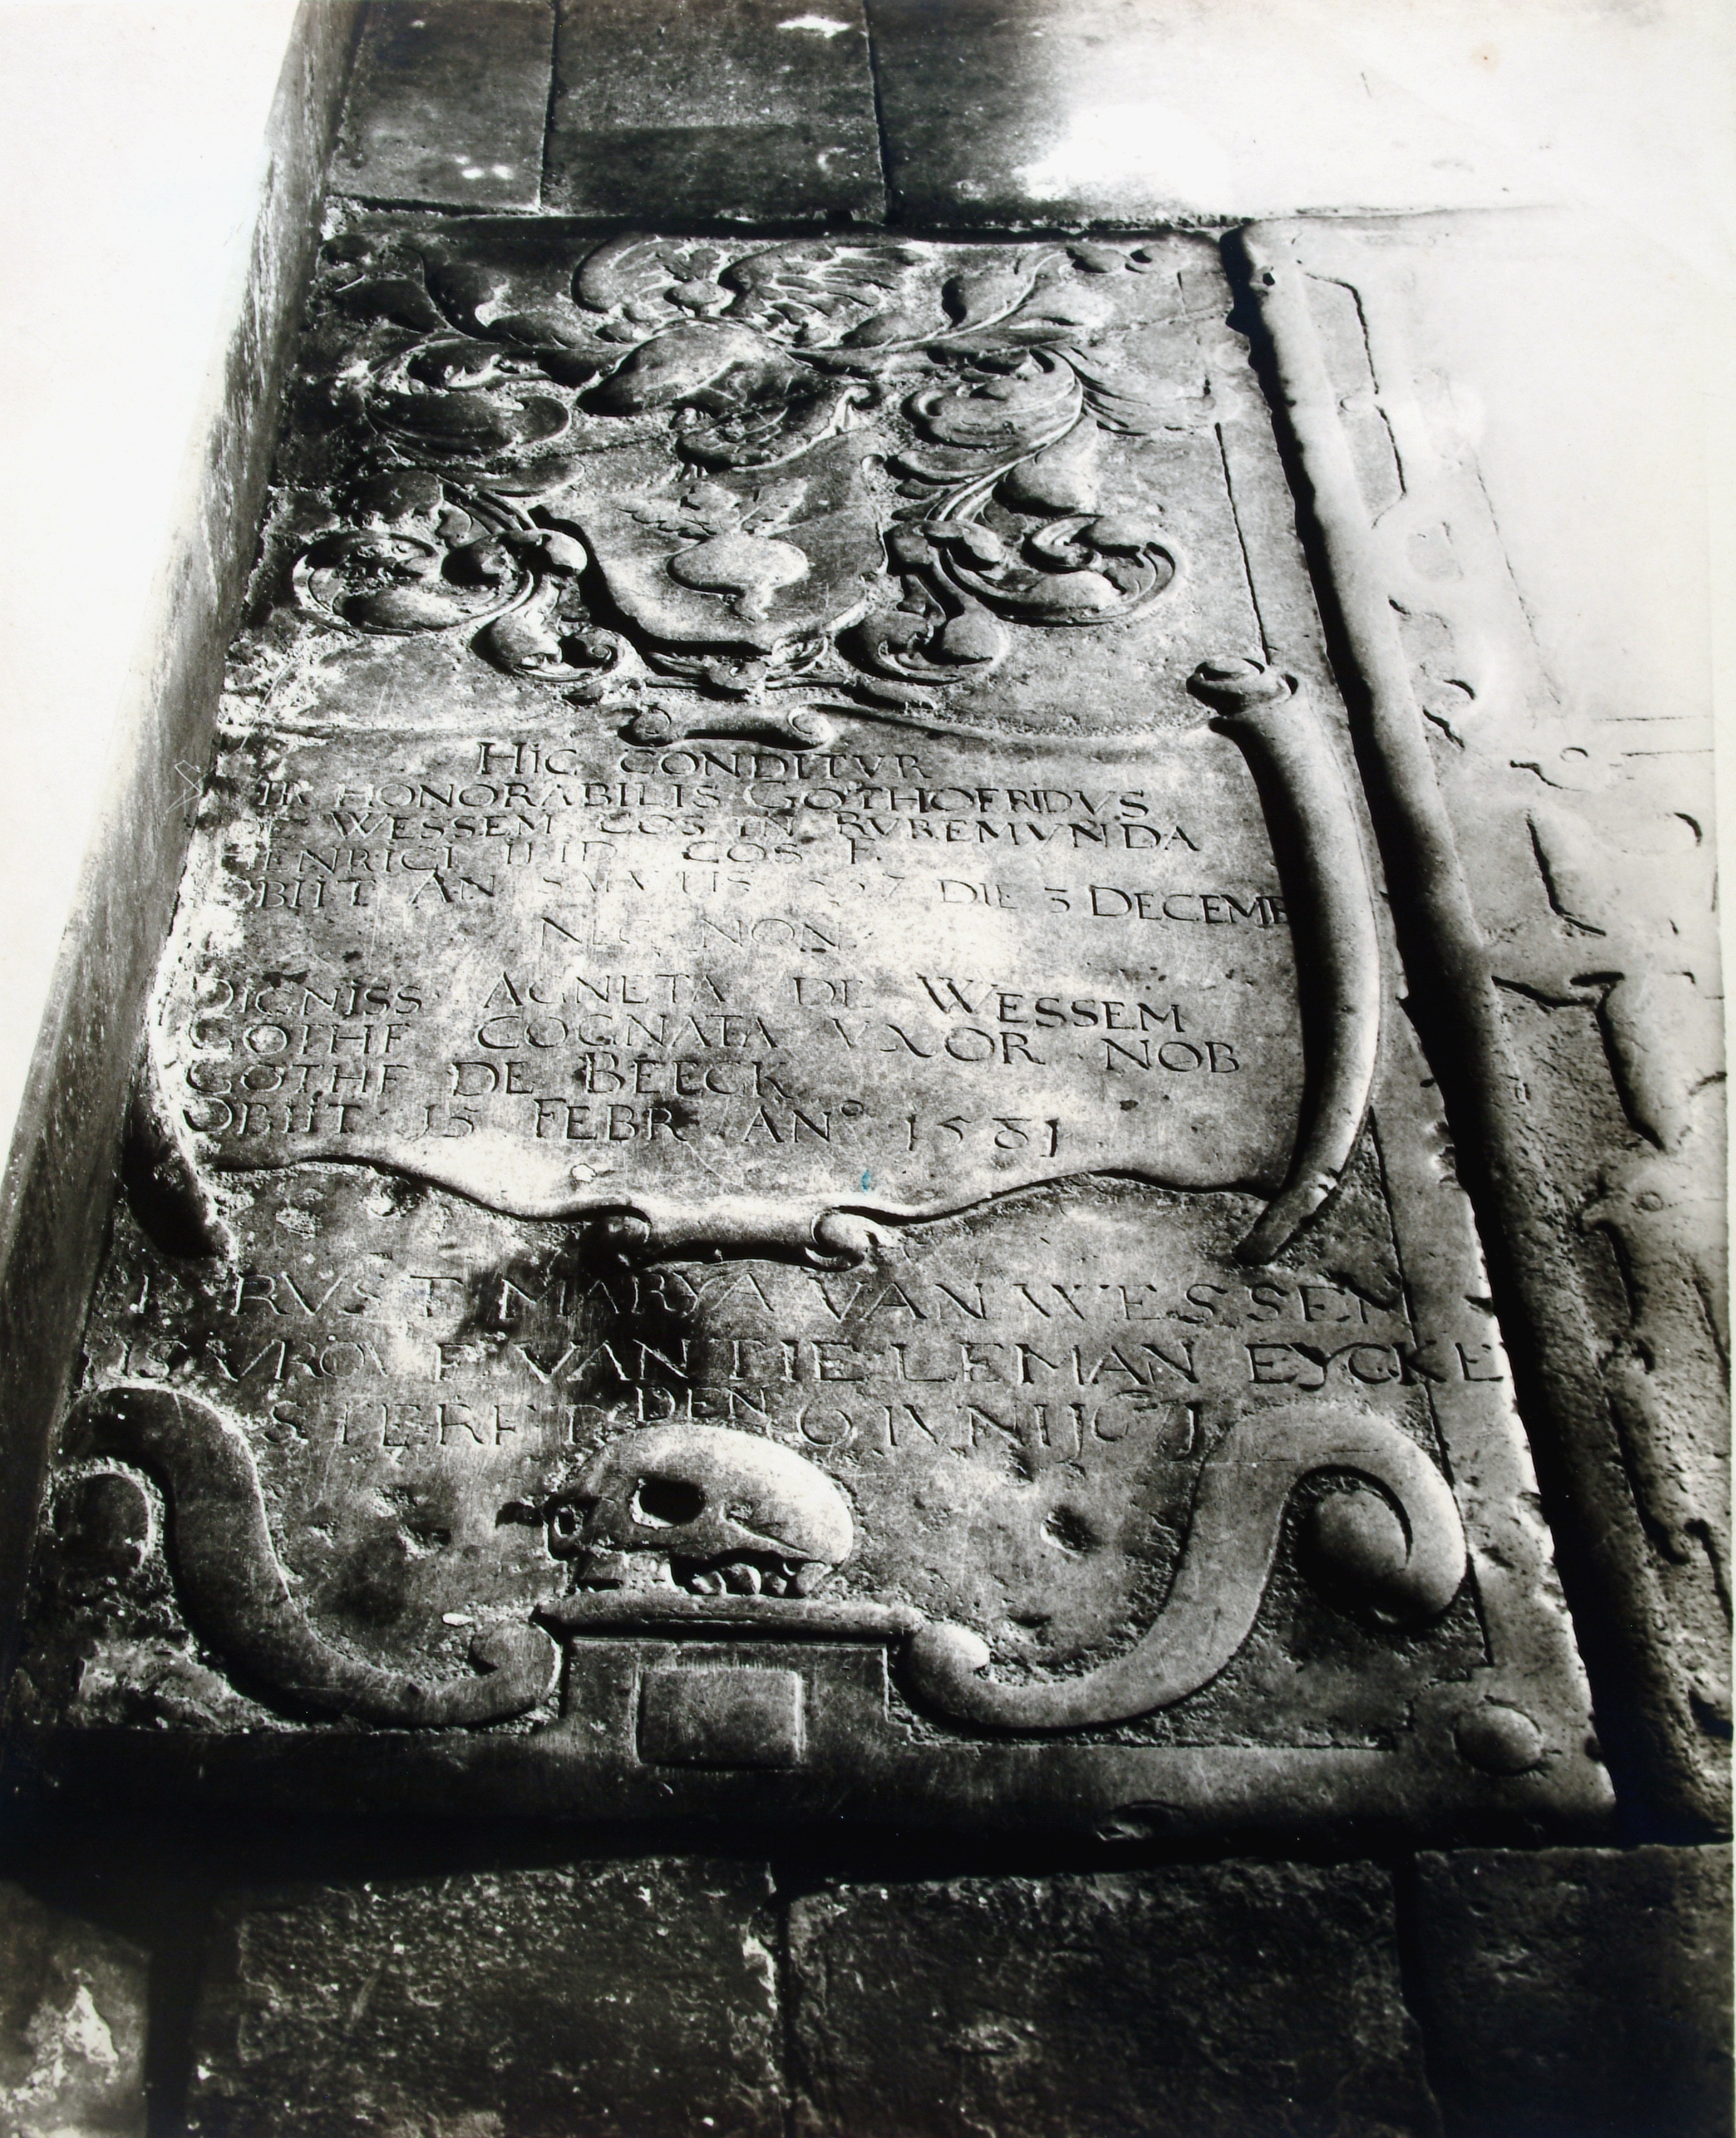 HIC CONDITVR
IR HONORABILIS GOTHOFRIDVS
WESSEM COS IN RVREMVNDA
ENRICI COS F.
OBIIT AN SALVTIS DIE 3 DECEMB
NEC NON
DIGNISS AGNETA DE WESSEM
GOTHF COGNATA VXOR NOB
GOTHF DE BEECK
OBIIT 15 FEBR AN° 1581
RVST MARYA VAN WESSEM
VROVE VAN TIELEMAN EYCKE
STERFT DEN 9 IVNIJ